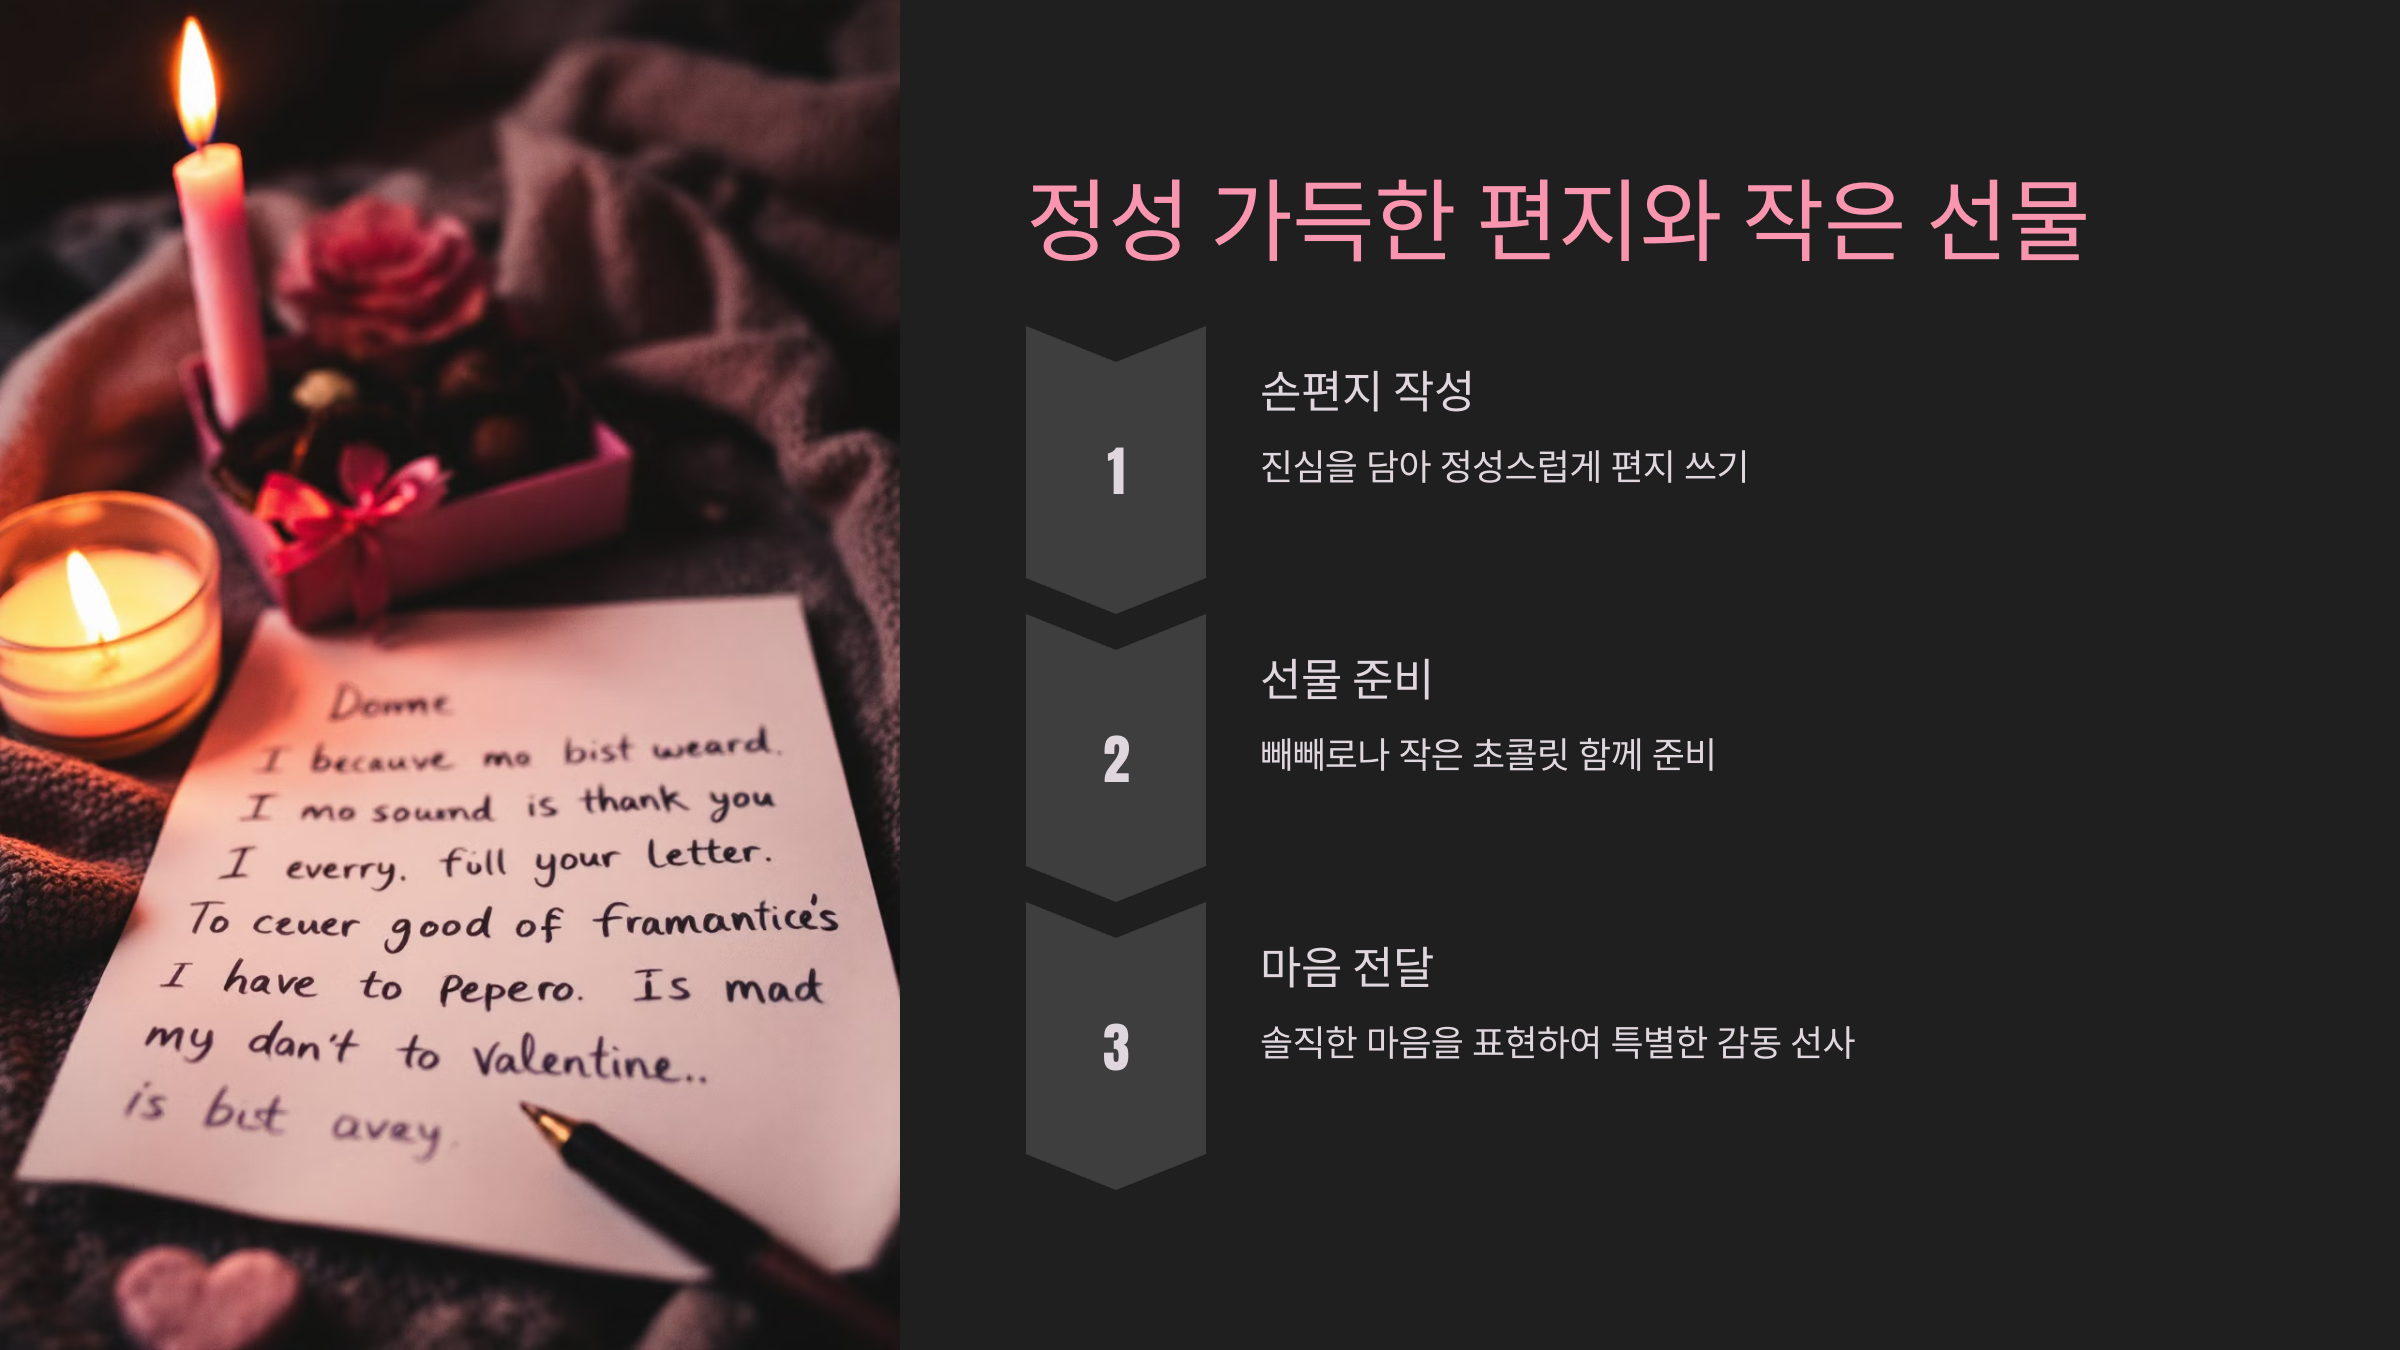 정성 가득한 편지와 작은 선물
1
손편지 작성
진심을 담아 정성스럽게 편지 쓰기
2
선물 준비
빼빼로나 작은 초콜릿 함께 준비
3
마음 전달
솔직한 마음을 표현하여 특별한 감동 선사
Domne
I becauve mo bist weard.
I mo sound is thank you
I everry. full your letter.
To ceuer good of framantice's
I have to Pepero. Is mad
my dan't to Valentine..
is but avey.